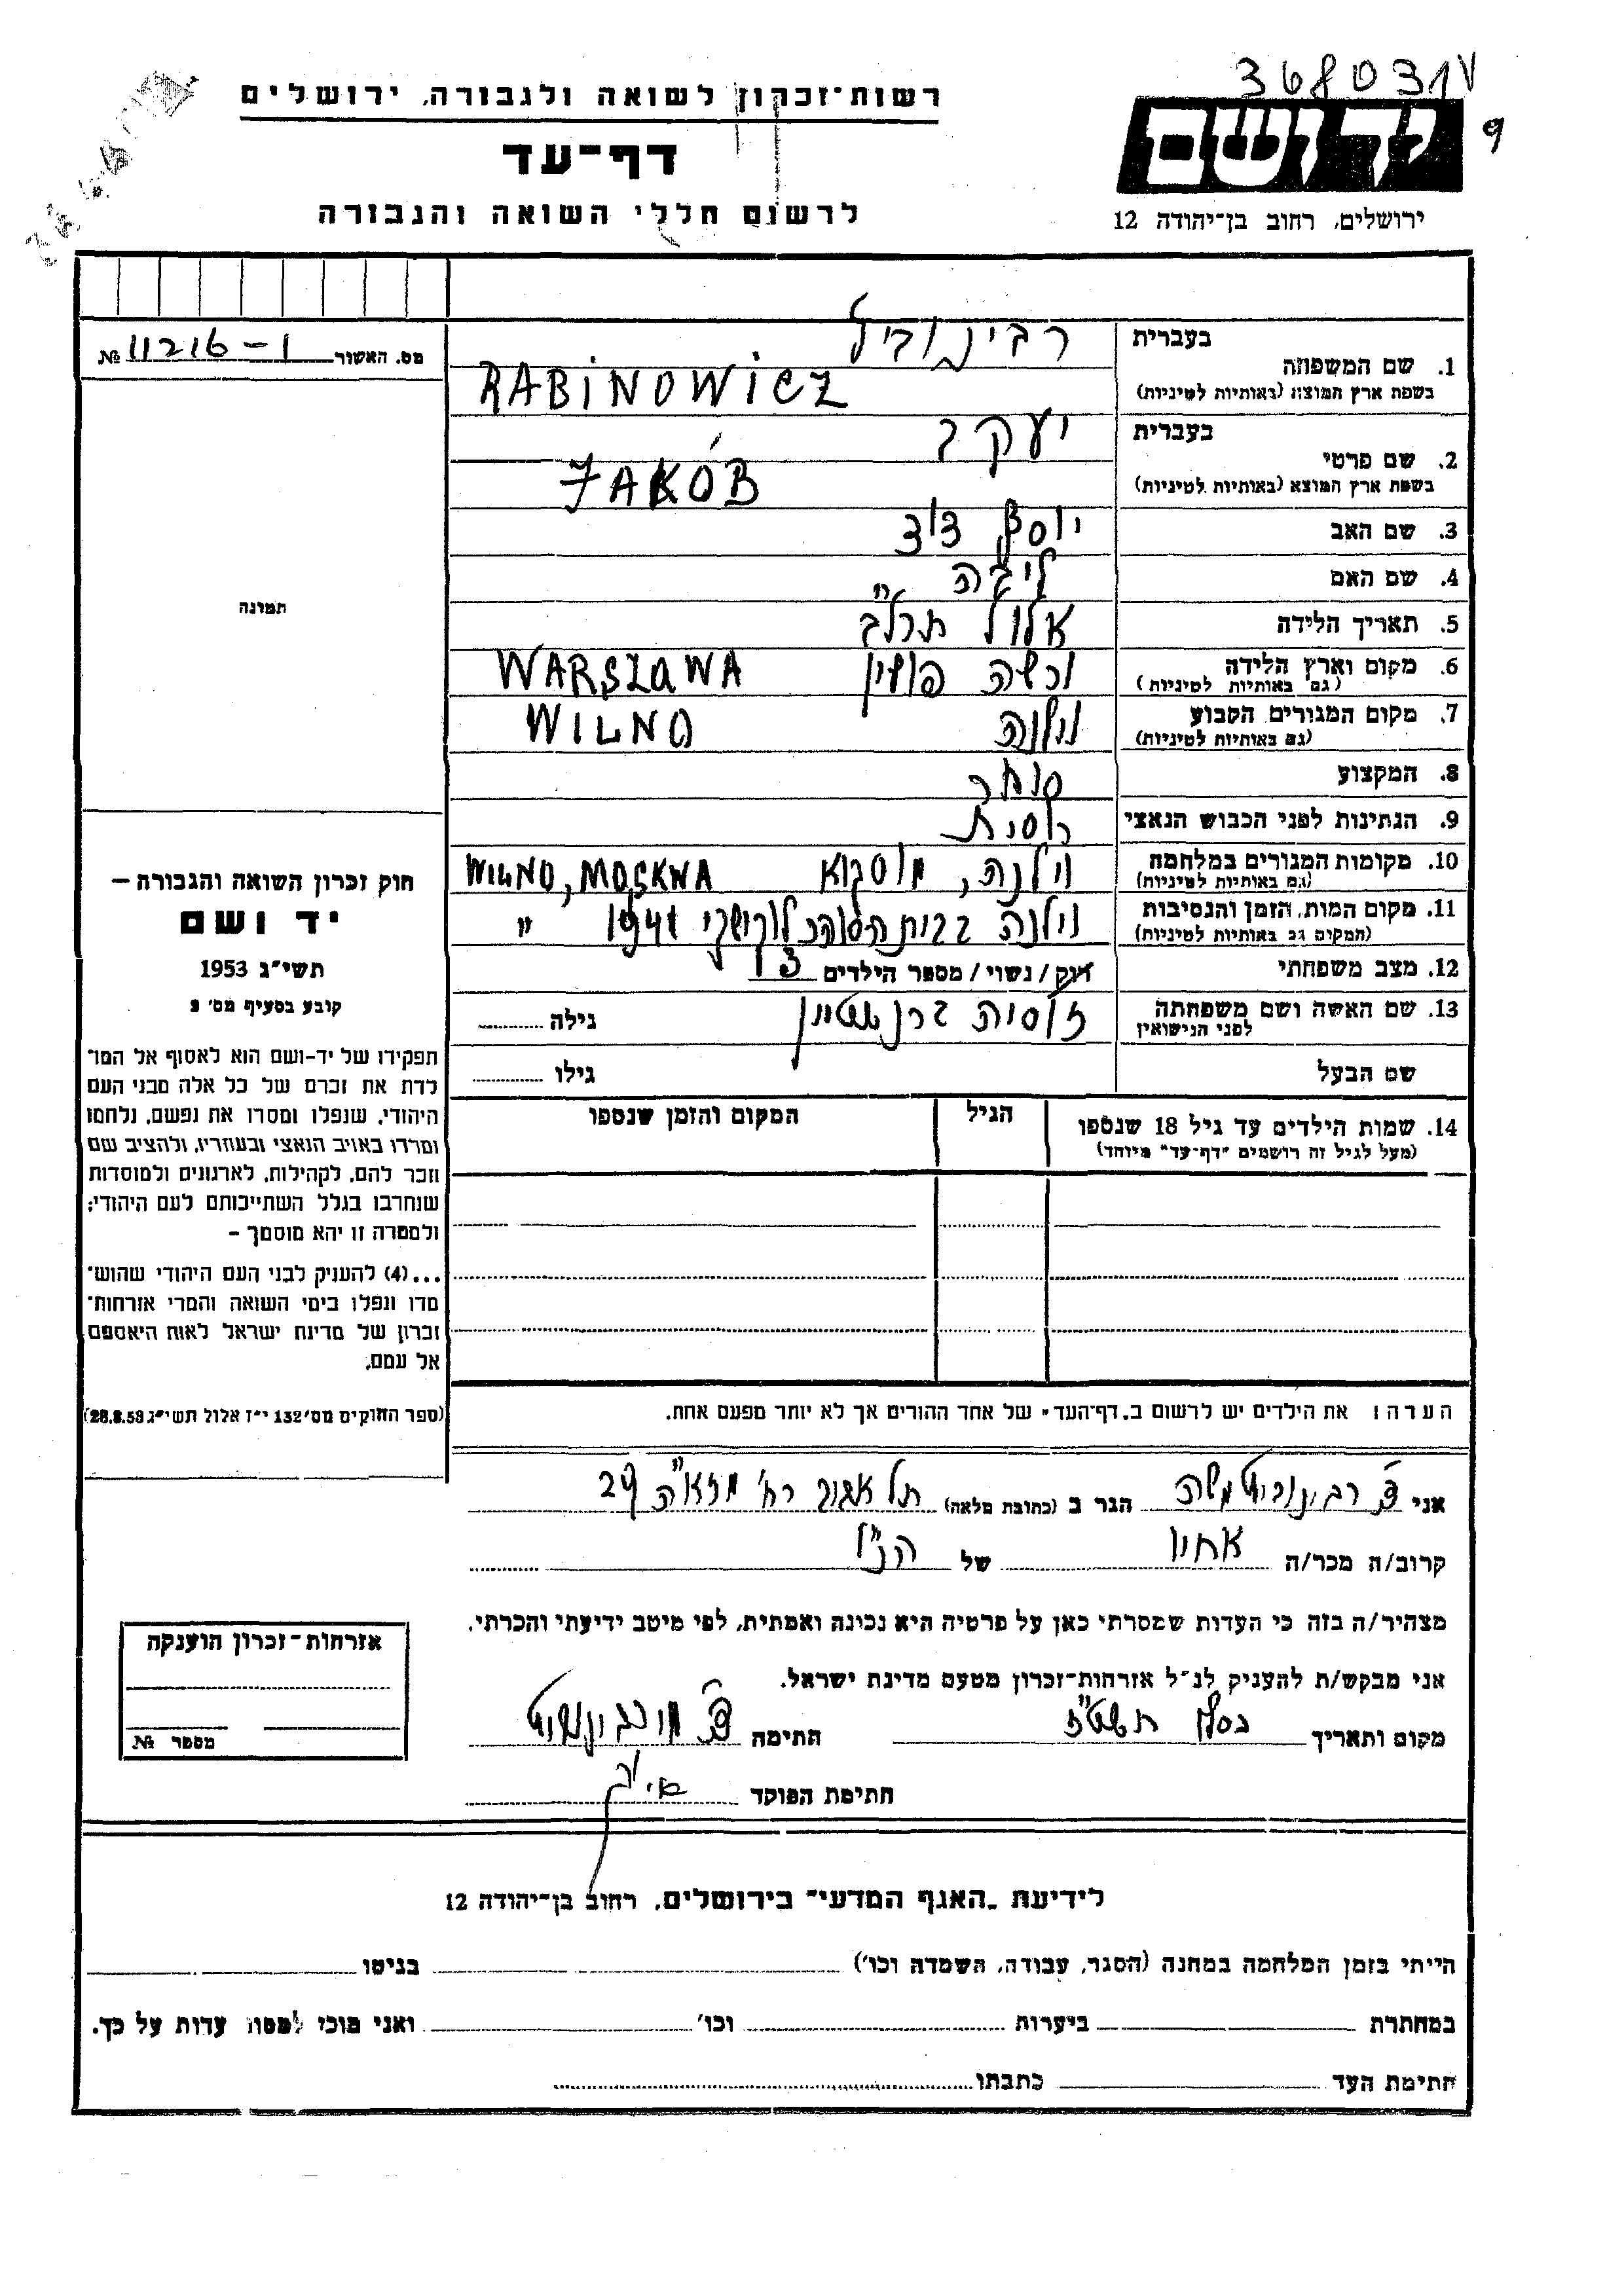 368031
9
רשות־זכרון לשואה ולגבורה, ירושלים
דף־עד
לרשום חללי השואה והגבורה
יד ושם
ירושלים, רחוב בן־יהודה 12
מס. האשור 11216-1 №
תמונה
בעברית
1. שם המשפחה
בשפת ארץ המוצא (באותיות לטיניות)
RABINOWICZ
בעברית יעקב
2. שם פרטי
בשפת ארץ המוצא (באותיות לטיניות)
JAKÓB
3. שם האב יוסף דוד
4. שם האם ליבה
5. תאריך הלידה אלול תרל"ב
6. מקום וארץ הלידה ורשה פולין WARSZAWA
(גם באותיות לטיניות)
7. מקום המגורים הקבוע וילנה WILNO
(גם באותיות לטיניות)
8. המקצוע סוחר
9. הנתינות לפני הכבוש הנאצי
10. מקומות המגורים במלחמה וילנה, מוסקוא WILNO, MOSKWA
(גם באותיות לטיניות)
11. מקום המות, הזמן והנסיבות וילנה בבית הסוהר לוקישקי 1941 "
(המקום גם באותיות לטיניות)
12. מצב משפחתי רוק / נשוי / מספר הילדים
13. שם האשה ושם משפחתה לפני הנישואין גילה
שם הבעל גילו
14. שמות הילדים עד גיל 18 שנספו הגיל המקום והזמן שנספו
(מעל לגיל זה רושמים "דף־עד" מיוחד)
חוק זכרון השואה והגבורה –
יד ושם
תשי"ג 1953
קובע בסעיף מס' 2
תפקידו של יד-ושם הוא לאסוף אל המו־
לדת את זכרם של כל אלה מבני העם
היהודי, שנפלו ומסרו את נפשם, נלחמו
ומרדו באויב הנאצי ובעוזריו, ולהציב שם
וזכר להם, לקהילות, לארגונים ולמוסדות
שנחרבו בגלל השתייכותם לעם היהודי;
ולמטרה זו יהא מוסמך –
...(4) להעניק לבני העם היהודי שהוש־
מדו ונפלו בימי השואה והמרי אזרחות־
זכרון של מדינת ישראל לאות היאספם
אל עמם.
(ספר החוקים מס' 132 י"ז אלול תשי"ג 28.8.53)
הערה: את הילדים יש לרשום ב"דף־העד" של אחד ההורים אך לא יותר מפעם אחת.
אני רבינוביץ משה הגר ב (כתובת מלאה) תל אביב רח' מזא"ה 29
קרוב/ה מכר/ה אחיו של הנ"ל
מצהיר/ה בזה כי העדות שמסרתי כאן על פרטיה היא נכונה ואמתית, לפי מיטב ידיעתי והכרתי.
אני מבקש/ת להעניק לנ"ל אזרחות־זכרון מטעם מדינת ישראל.
מקום ותאריך כסלו תשט"ז חתימה
חתימת הפוקד
אזרחות־זכרון הוענקה
מספר №
לידיעת "האגף המדעי" בירושלים, רחוב בן־יהודה 12
הייתי בזמן המלחמה במחנה (הסגר, עבודה, השמדה וכו') בגיטו
במחתרת ביערות וכו' ואני מוכן למסור עדות על כך.
חתימת העד כתבתו